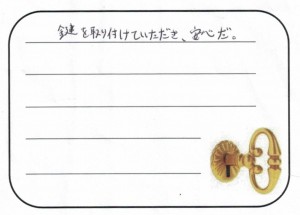 鍵を取り付けていただき、安心だ。